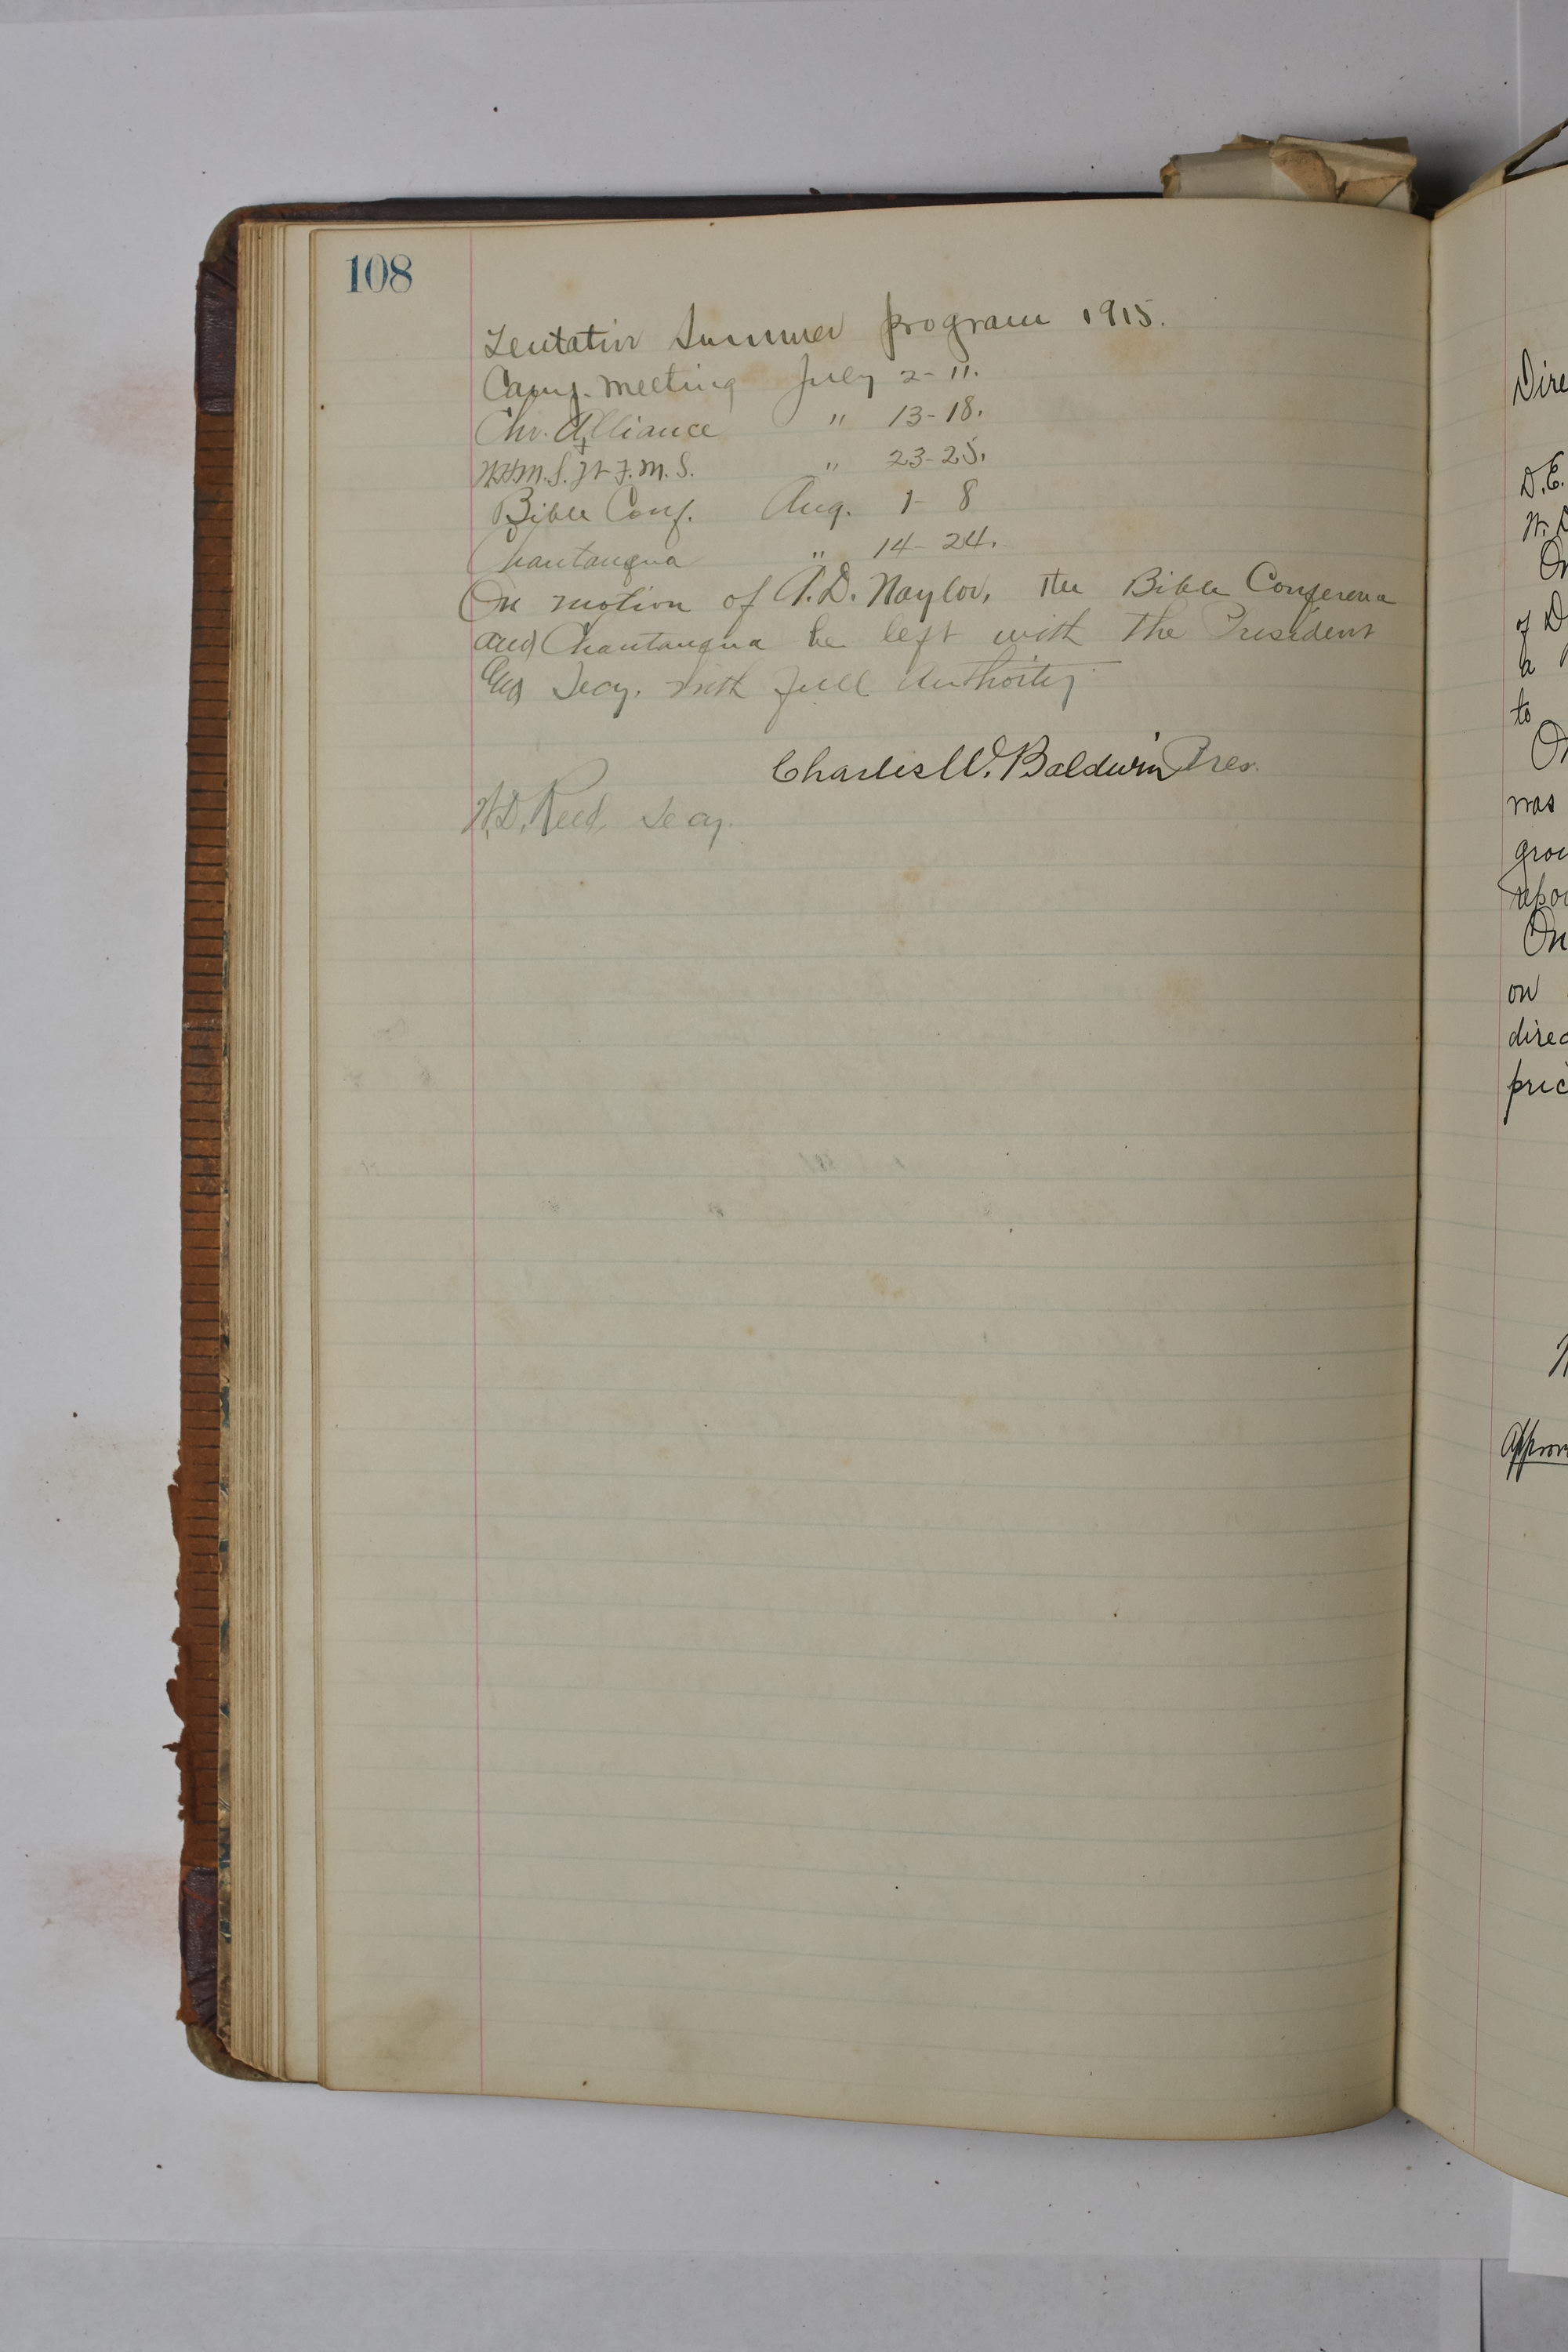 108
Tentative Summer program 1915.
Camp-meeting July 2-11.
Chr. Alliance " 13-18.
W.H.M.S. & W.F.M.S. " 23-25.
Bible Conf. Aug. 1-8
Chautauqua " 14-24.
On motion of A.D. Naylor, the Bible Conference
and Chautauqua be left with the President
and Secy. with full authority
Charles W. Baldwin Pres.
W.D. Reed, Secy.
Dire
D.E.
W.D
On
of D
a
to
On
was
grou
repo
On
on
direc
pric
Approv